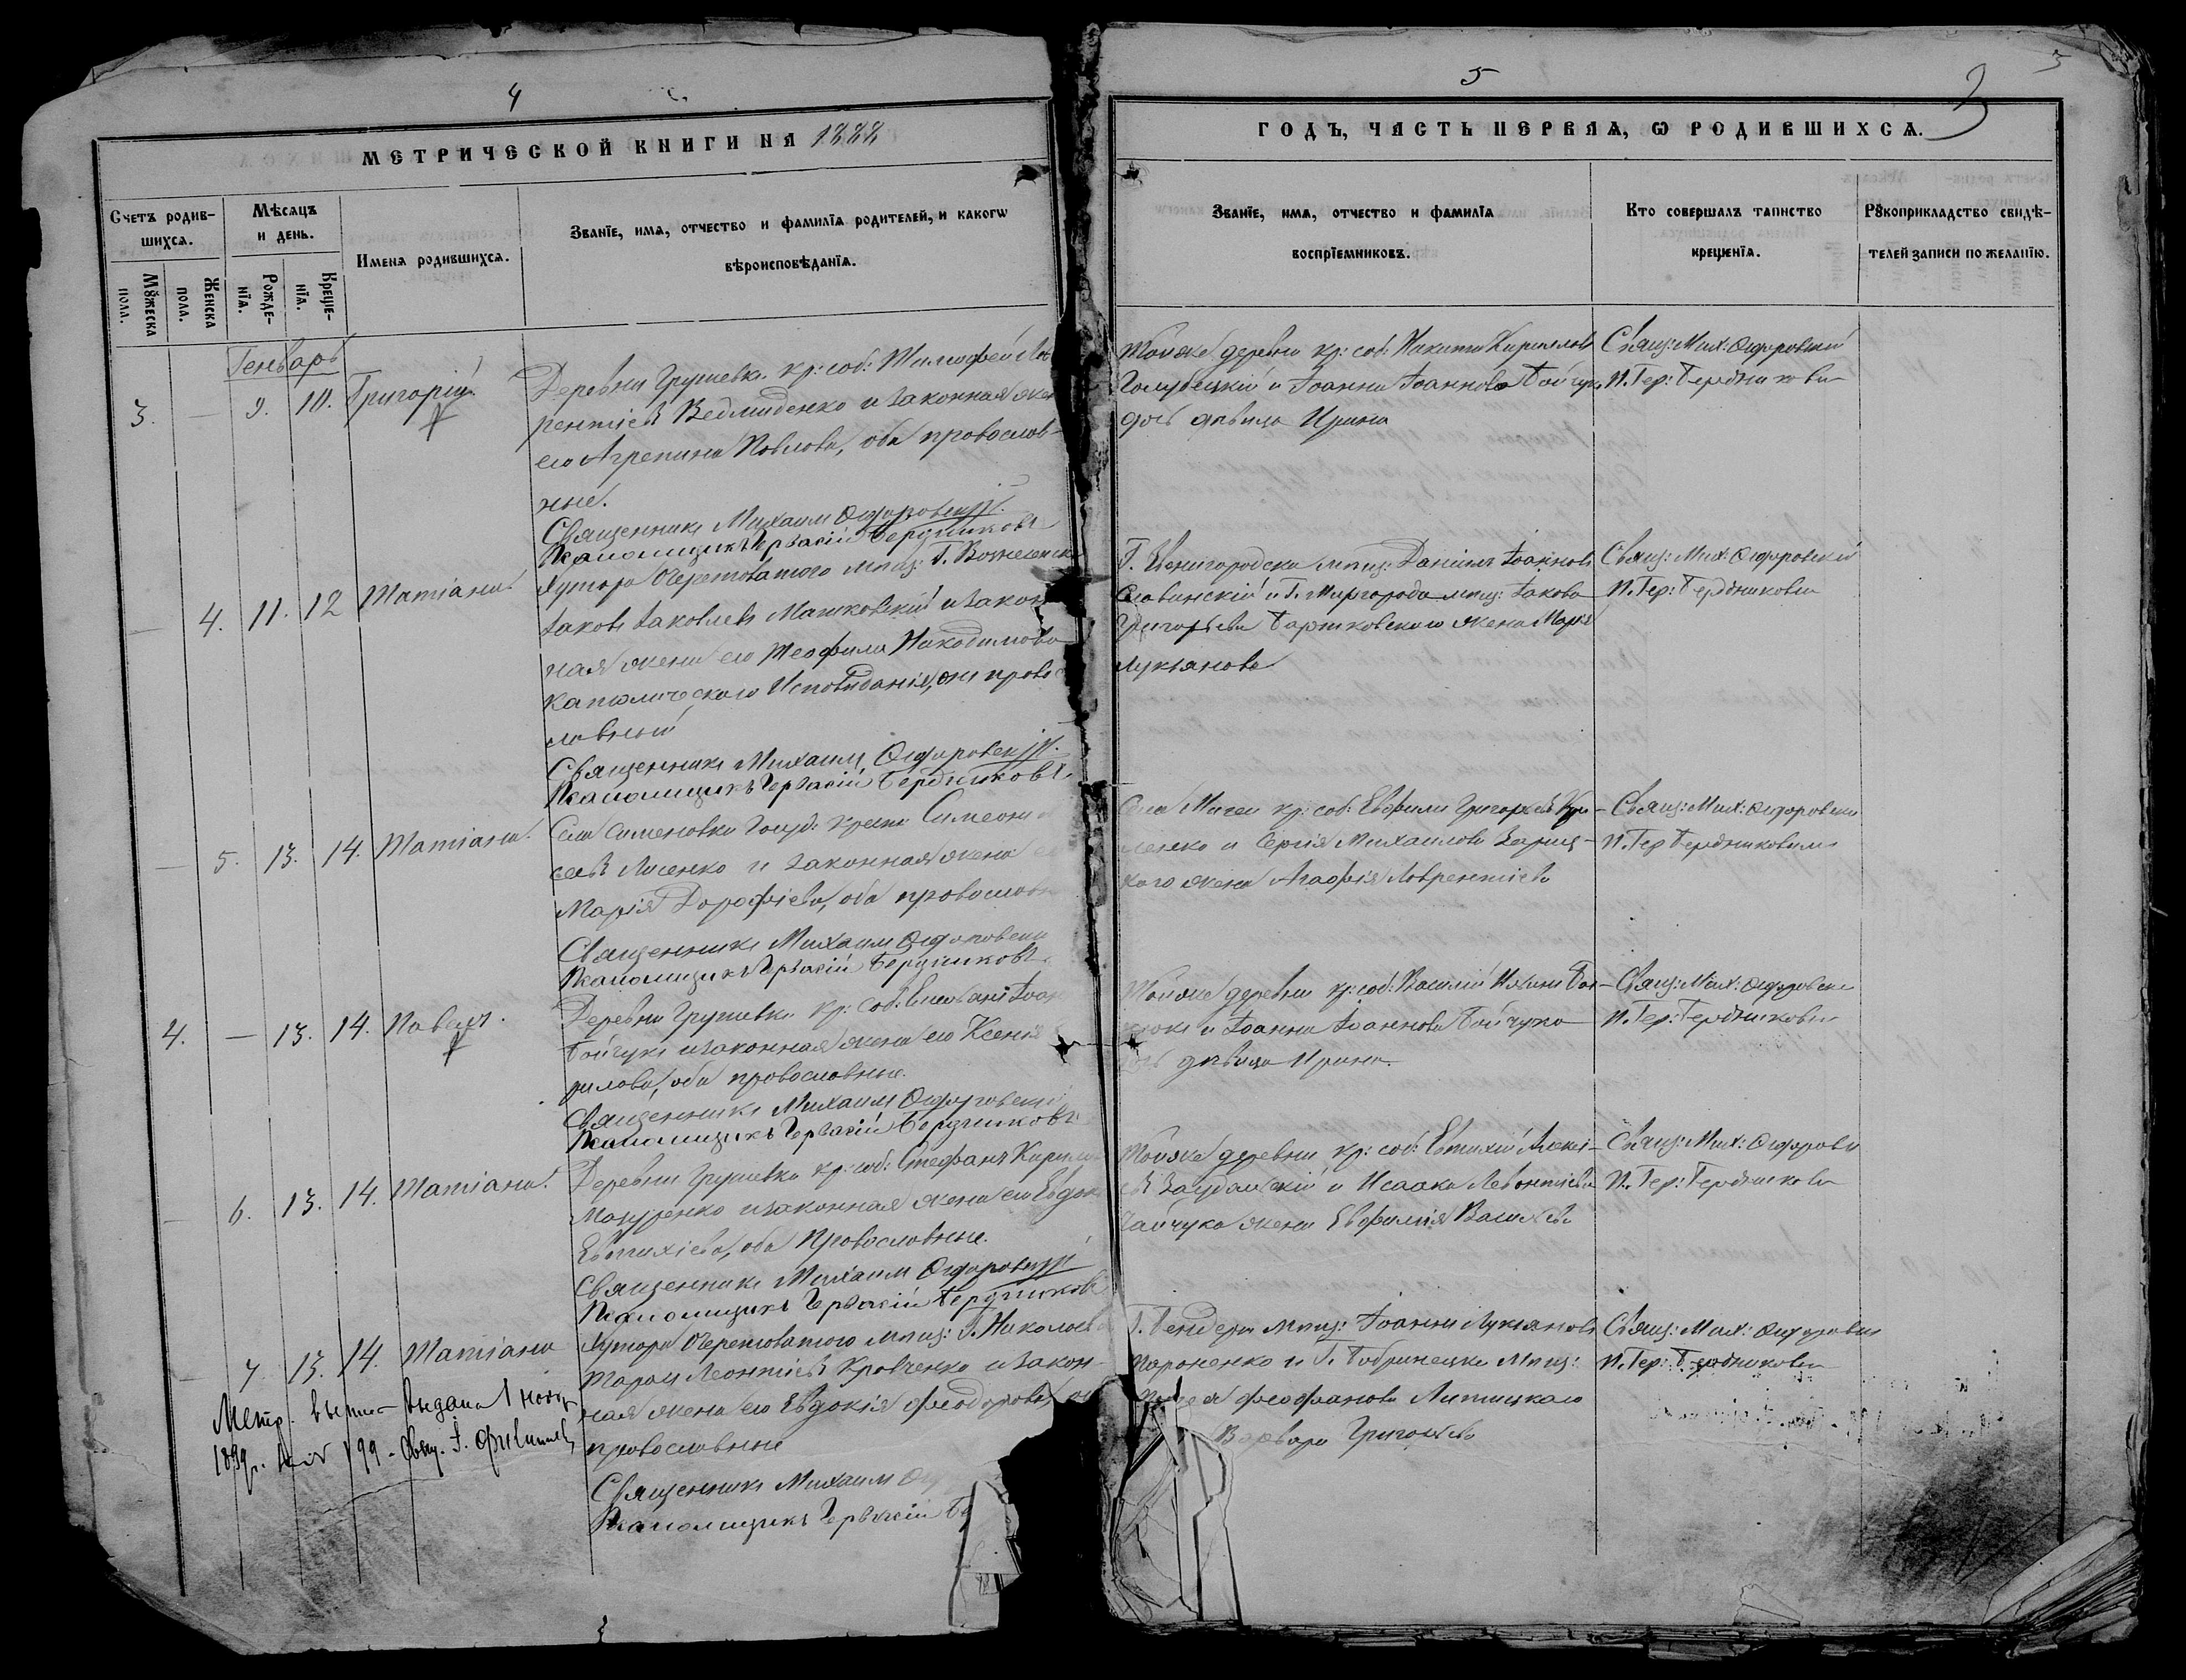 4
МЕТРИЧЕСКОЙ КНИГИ НА 1888
Счетъ родившихся.
Мѣсяцъ и день.
Имена родившихся.
Званїе, имя, отчество и фамилїя родителей, и какогѡ
вѣроисповѣданїя.
Мꙋжеска пола.
Женска пола.
Рожденїя.
Крещенїя.
Генварь
3. — 9. 10. Григорій
Деревни Грушевки кр: соб: Тимофей Лав
рентіевъ Ведмиденко и законная жен
его Агрепина Павлова, оба православ-
ные.
Священникъ Михаилъ Ѳедоровскій.
Псаломщикъ Гервасій Бердниковъ
— 4. 11. 12 Татіана
Хутора Очеретоватого мѣщ: Г. Вознесенск
Іаковъ Іаковлевъ Машковскій и закон
ная жена его Теофила Никодимова
католического Исповѣданія, онъ право
славный
Священникъ Михаилъ Ѳедоровскій.
Псаломщикъ Гервасій Бердниковъ.
— 5. 13. 14. Татіана.
Села Симоновки Госуд. крест: Симеон
сеевъ Лисенко и законная жена
Марія Дорофіева, оба православн
Священникъ Михаилъ Ѳедоровски
Псаломщикъ Гервасій Бердниковъ.
4. — 13. 14. Павелъ.
Деревни Грушевки кр: соб:
Бойчукъ и законная жена его Ксенія
рилова, оба православные.
Священникъ Михаилъ Ѳедоровски
Псаломщикъ Гервасій Бердниковъ
— 6. 13. 14. Татіана.
Деревни Грушевки кр: соб: Стефанъ Кирил
Мазуренко и законная жена его Евдок
Евтихіева, оба Православные.
Священникъ Михаилъ Ѳедоровскій
Псаломщикъ Гервасій Бердниковъ
— 7. 13. 14. Татіана
Хутора Очеретоватого мѣщ: Г. Николаев
Тарас Леонтіевъ Кравченко и закон-
ная жена его Евдокія Феодорова,
православные
Священникъ Михаилъ Ѳе
Псаломщикъ Гервасій Бе
Метр. выпис выдана 1 нояб
1899г. за № 199. Свящ. І.
5
3
5
ГОДЪ, ЧАСТЬ ПЕРВАЯ, Ѡ РОДИВШИХСЯ.
Званїе, имя, отчество и фамилїя
воспрїемниковъ.
Кто совершалъ таинство
крещенїя.
Рꙋкоприкладство свидѣ-
телей записи по желанїю.
Той же деревни кр: соб: Никита Кирилловъ
Голубецкій и Іоанна Іоаннова Бойчук
дочь дѣвица Ирина
Свящ: Мих: Ѳедоровскій
П. Гер: Бердниковъ
Г. Звенигородска мѣщ: Даніилъ Іоаннов
Славинскій и Г. Миргорода мѣщ: Іакова
Григорьева Бартковского жена Марѳ
Лукіянова
Свящ: Мих: Ѳедоровскій
П. Гер: Бердниковъ
Села Мигеи кр: соб: Евфимъ Григорьевъ
ленко и Сергія Михаилова Зариц-
кого жена Агафія Лаврентіева
Свящ: Мих: Ѳедоровски
П. Гер Бердниковымъ
Той же деревни кр: соб: Василій
и Іоанна Іоаннова Бойчука
дѣвица Ирина.
Свящ: Мих: Ѳедоровски
П. Гер: Бердниковъ
Той же деревни кр: соб: Евтихій Алексі-
евъ и Исаака Левонтіева
Бойчука жена Евфимія Василева
Свящ: Мих: Ѳедоровск
П. Гер: Бердниковъ
Г. Бендеръ мѣщ: Іоаннъ Лукіяновъ
Пароненко и Г. Бобринецка мѣщ:
Феофанова Липицкого
Варвара Григорьева
Свящ: Мих: Ѳедоровски
П. Гер: Бердниковъ